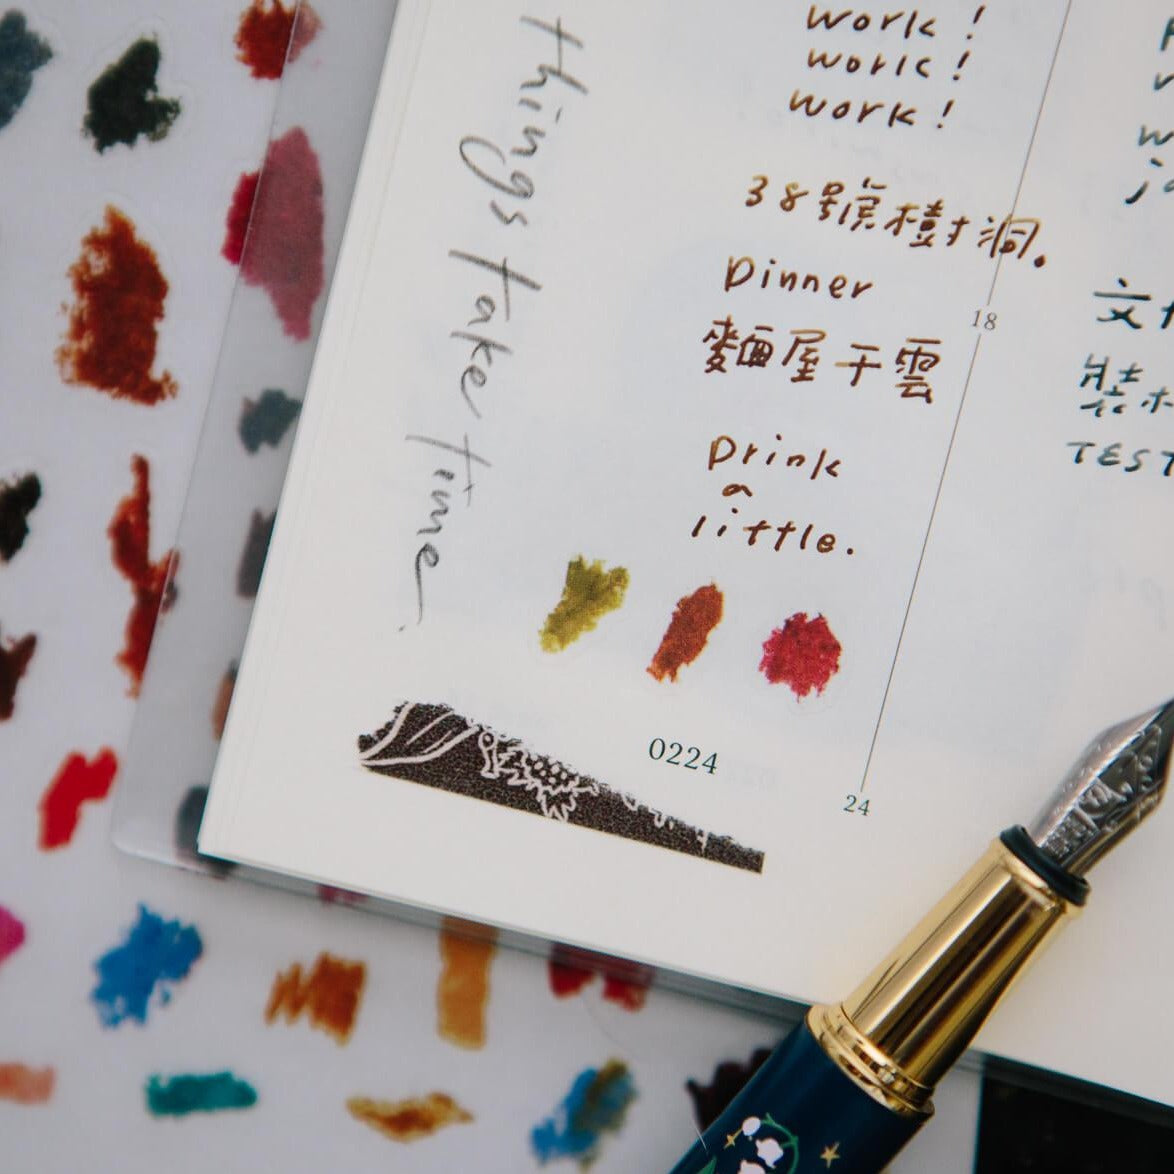 work!
work!
work!
38號樹洞.
Dinner
麵屋千雲
Drink
a
little.
things take time.
18
0224
24
TEST